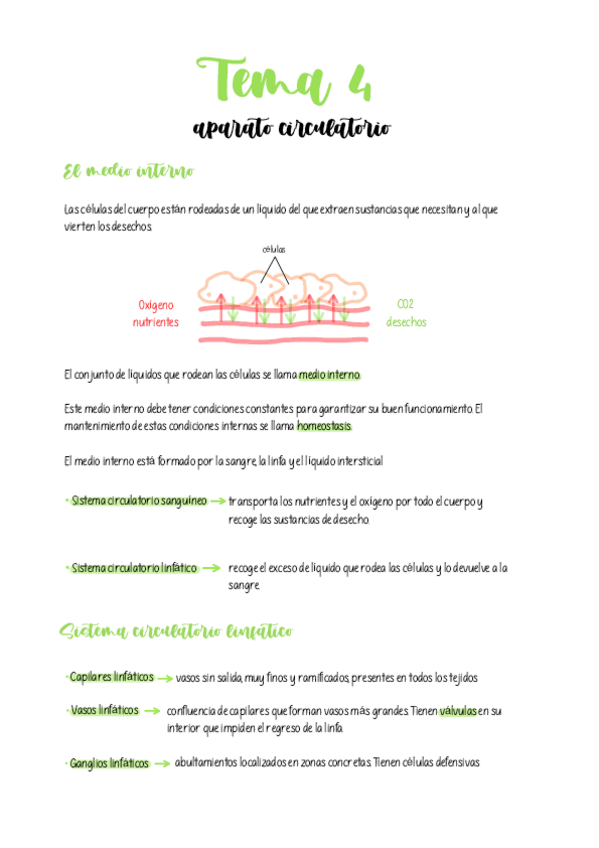 Tema 4
aparato circulatorio
El medio interno
Las células del cuerpo están rodeadas de un líquido del que extraen sustancias que necesitan y al que
vierten los desechos.
células
Oxígeno
nutrientes
CO2
desechos
El conjunto de líquidos que rodean las células se llama medio interno.
Este medio interno debe tener condiciones constantes para garantizar su buen funcionamiento. El
mantenimiento de estas condiciones internas se llama homeostasis.
El medio interno está formado por la sangre, la linfa y el líquido intersticial
· Sistema circulatorio sanguíneo → transporta los nutrientes y el oxígeno por todo el cuerpo y
recoge las sustancias de desecho.
· Sistema circulatorio linfático → recoge el exceso de líquido que rodea las células y lo devuelve a la
sangre.
Sistema circulatorio linfático
· Capilares linfáticos → vasos sin salida, muy finos y ramificados, presentes en todos los tejidos
· Vasos linfáticos → confluencia de capilares que forman vasos más grandes. Tienen válvulas en su
interior que impiden el regreso de la linfa.
· Ganglios linfáticos → abultamientos localizados en zonas concretas. Tienen células defensivas